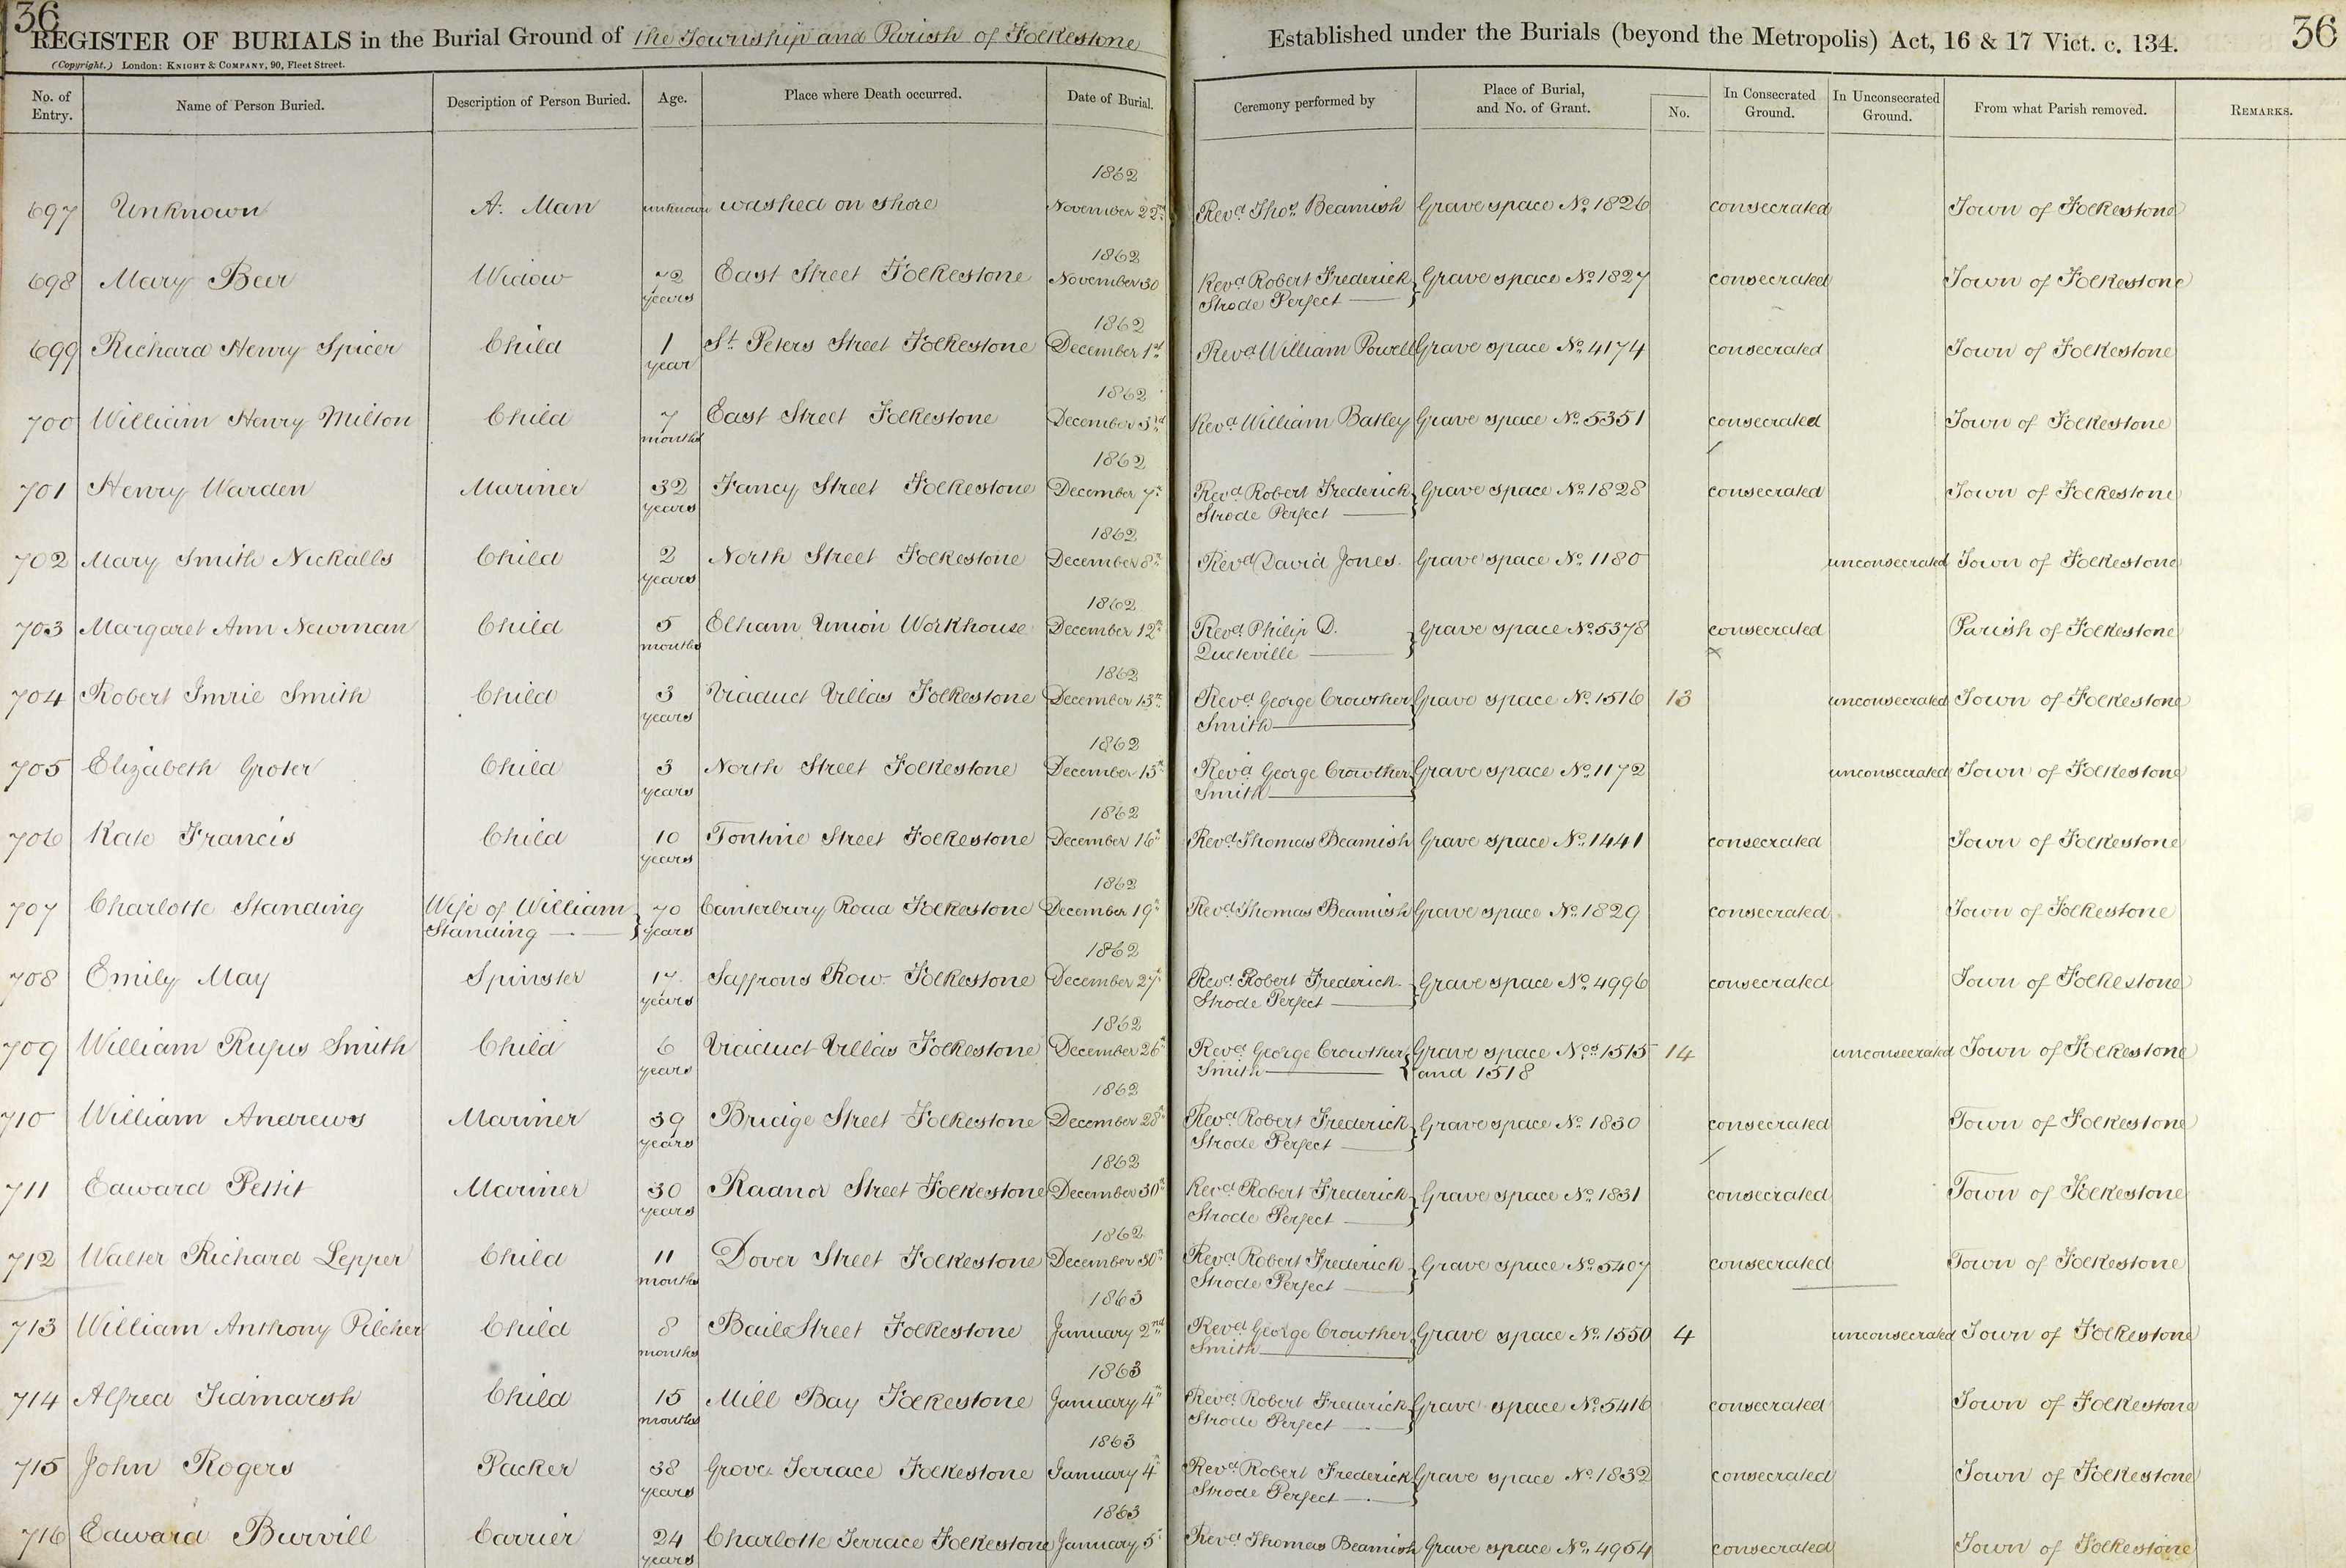 36
REGISTER OF BURIALS in the Burial Ground of the Township and Parish of Folkestone
(Copyright.) London: KNIGHT & COMPANY, 90, Fleet Street.
Established under the Burials (beyond the Metropolis) Act, 16 & 17 Vict. c. 134.
36
No. of Entry. Name of Person Buried. Description of Person Buried. Age. Place where Death occurred. Date of Burial. Ceremony performed by Place of Burial, and No. of Grant. No. In Consecrated Ground. In Unconsecrated Ground. From what Parish removed. REMARKS.
1862
697 Unknown A. Man unknown washed on shore November 22nd Revd. Thos. Beamish Grave space No. 1826 consecrated Town of Folkestone
1862
698 Mary Beer Widow 72 East Street Folkestone November 30 Revd. Robert Frederick Grave space No. 1827 consecrated Town of Folkestone
years Strode Perfect
1862
699 Richard Henry Spicer Child 1 St. Peters Street Folkestone December 1st Revd. William Powell Grave space No. 4174 consecrated Town of Folkestone
year
1862
700 William Henry Milton Child 7 East Street Folkestone December 3rd Revd. William Batley Grave space No. 5351 consecrated Town of Folkestone
months
1862
701 Henry Warden Mariner 32 Fancy Street Folkestone December 7th Revd. Robert Frederick Grave space No. 1828 consecrated Town of Folkestone
years Strode Perfect
1862
702 Mary Smith Nickalls Child 2 North Street Folkestone December 8th Revd. David Jones. Grave space No. 1180 unconsecrated Town of Folkestone
years
1862
703 Margaret Ann Newman Child 5 Elham Union Workhouse December 12th Revd. Philip D. Grave space No. 5378 consecrated Parish of Folkestone
months Queteville
1862
704 Robert Imrie Smith Child 3 Viaduct Villas Folkestone December 13th Revd. George Crowther Grave space No. 1516 13 unconsecrated Town of Folkestone
years Smith
1862
705 Elizabeth Groter Child 3 North Street Folkestone December 15th Revd. George Crowther Grave space No. 1172 unconsecrated Town of Folkestone
years Smith
1862
706 Kate Francis Child 10 Tontine Street Folkestone December 16th Revd. Thomas Beamish Grave space No. 1441 consecrated Town of Folkestone
years
1862
707 Charlotte Standing Wife of William 70 Canterbury Road Folkestone December 19th Revd. Thomas Beamish Grave space No. 1829 consecrated Town of Folkestone
Standing years
1862
708 Emily May Spinster 17 Saffrons Row Folkestone December 27th Revd. Robert Frederick Grave space No. 4996 consecrated Town of Folkestone
years Strode Perfect
1862
709 William Rufus Smith Child 6 Viaduct Villas Folkestone December 26th Revd. George Crowther Grave space Nos. 1515 14 unconsecrated Town of Folkestone
years Smith and 1518
1862
710 William Andrews Mariner 39 Bridge Street Folkestone December 28th Revd. Robert Frederick Grave space No. 1830 consecrated Town of Folkestone
years Strode Perfect
1862
711 Edward Pettit Mariner 30 Radnor Street Folkestone December 30th Revd. Robert Frederick Grave space No. 1831 consecrated Town of Folkestone
years Strode Perfect
1862
712 Walter Richard Lepper Child 11 Dover Street Folkestone December 30th Revd. Robert Frederick Grave space No. 5407 consecrated Town of Folkestone
months Strode Perfect
1863
713 William Anthony Pilcher Child 8 Baile Street Folkestone January 2nd Revd. George Crowther Grave space No. 1550 4 unconsecrated Town of Folkestone
months Smith
1863
714 Alfred Tidmarsh Child 15 Mill Bay Folkestone January 4th Revd. Robert Frederick Grave space No. 5416 consecrated Town of Folkestone
months Strode Perfect
1863
715 John Rogers Packer 38 Grove Terrace Folkestone January 4th Revd. Robert Frederick Grave space No. 1832 consecrated Town of Folkestone
years Strode Perfect
1863
716 Edward Burvill Carrier 24 Charlotte Terrace Folkestone January 5th Revd. Thomas Beamish Grave space No. 4954 consecrated Town of Folkestone
years